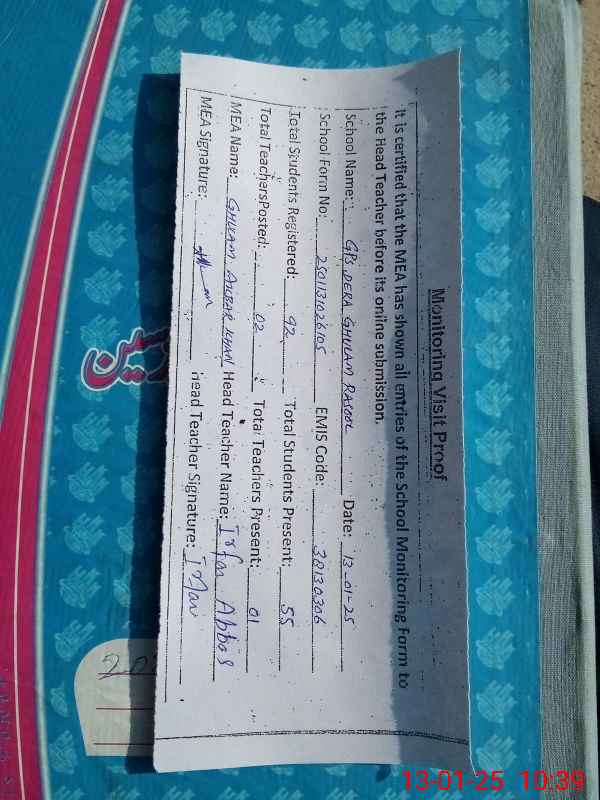 Monitoring Visit Proof
It is certified that the MEA has shown all entries of the School Monitoring Form to
the Head Teacher before its online submission.
School Name: GPS DERA GHULAM RASOOL Date: 13-01-25
School Form No: 250113102610S EMIS Code: 38130306
Total Students Registered: 92 Total Students Present: 55
Total TeachersPosted: 02 Total Teachers Present: 01
MEA Name: GHULAM AKBAR KHAN Head Teacher Name: Irfan Abbas
MEA Signature: Head Teacher Signature: Irfan
13-01-25 10:39